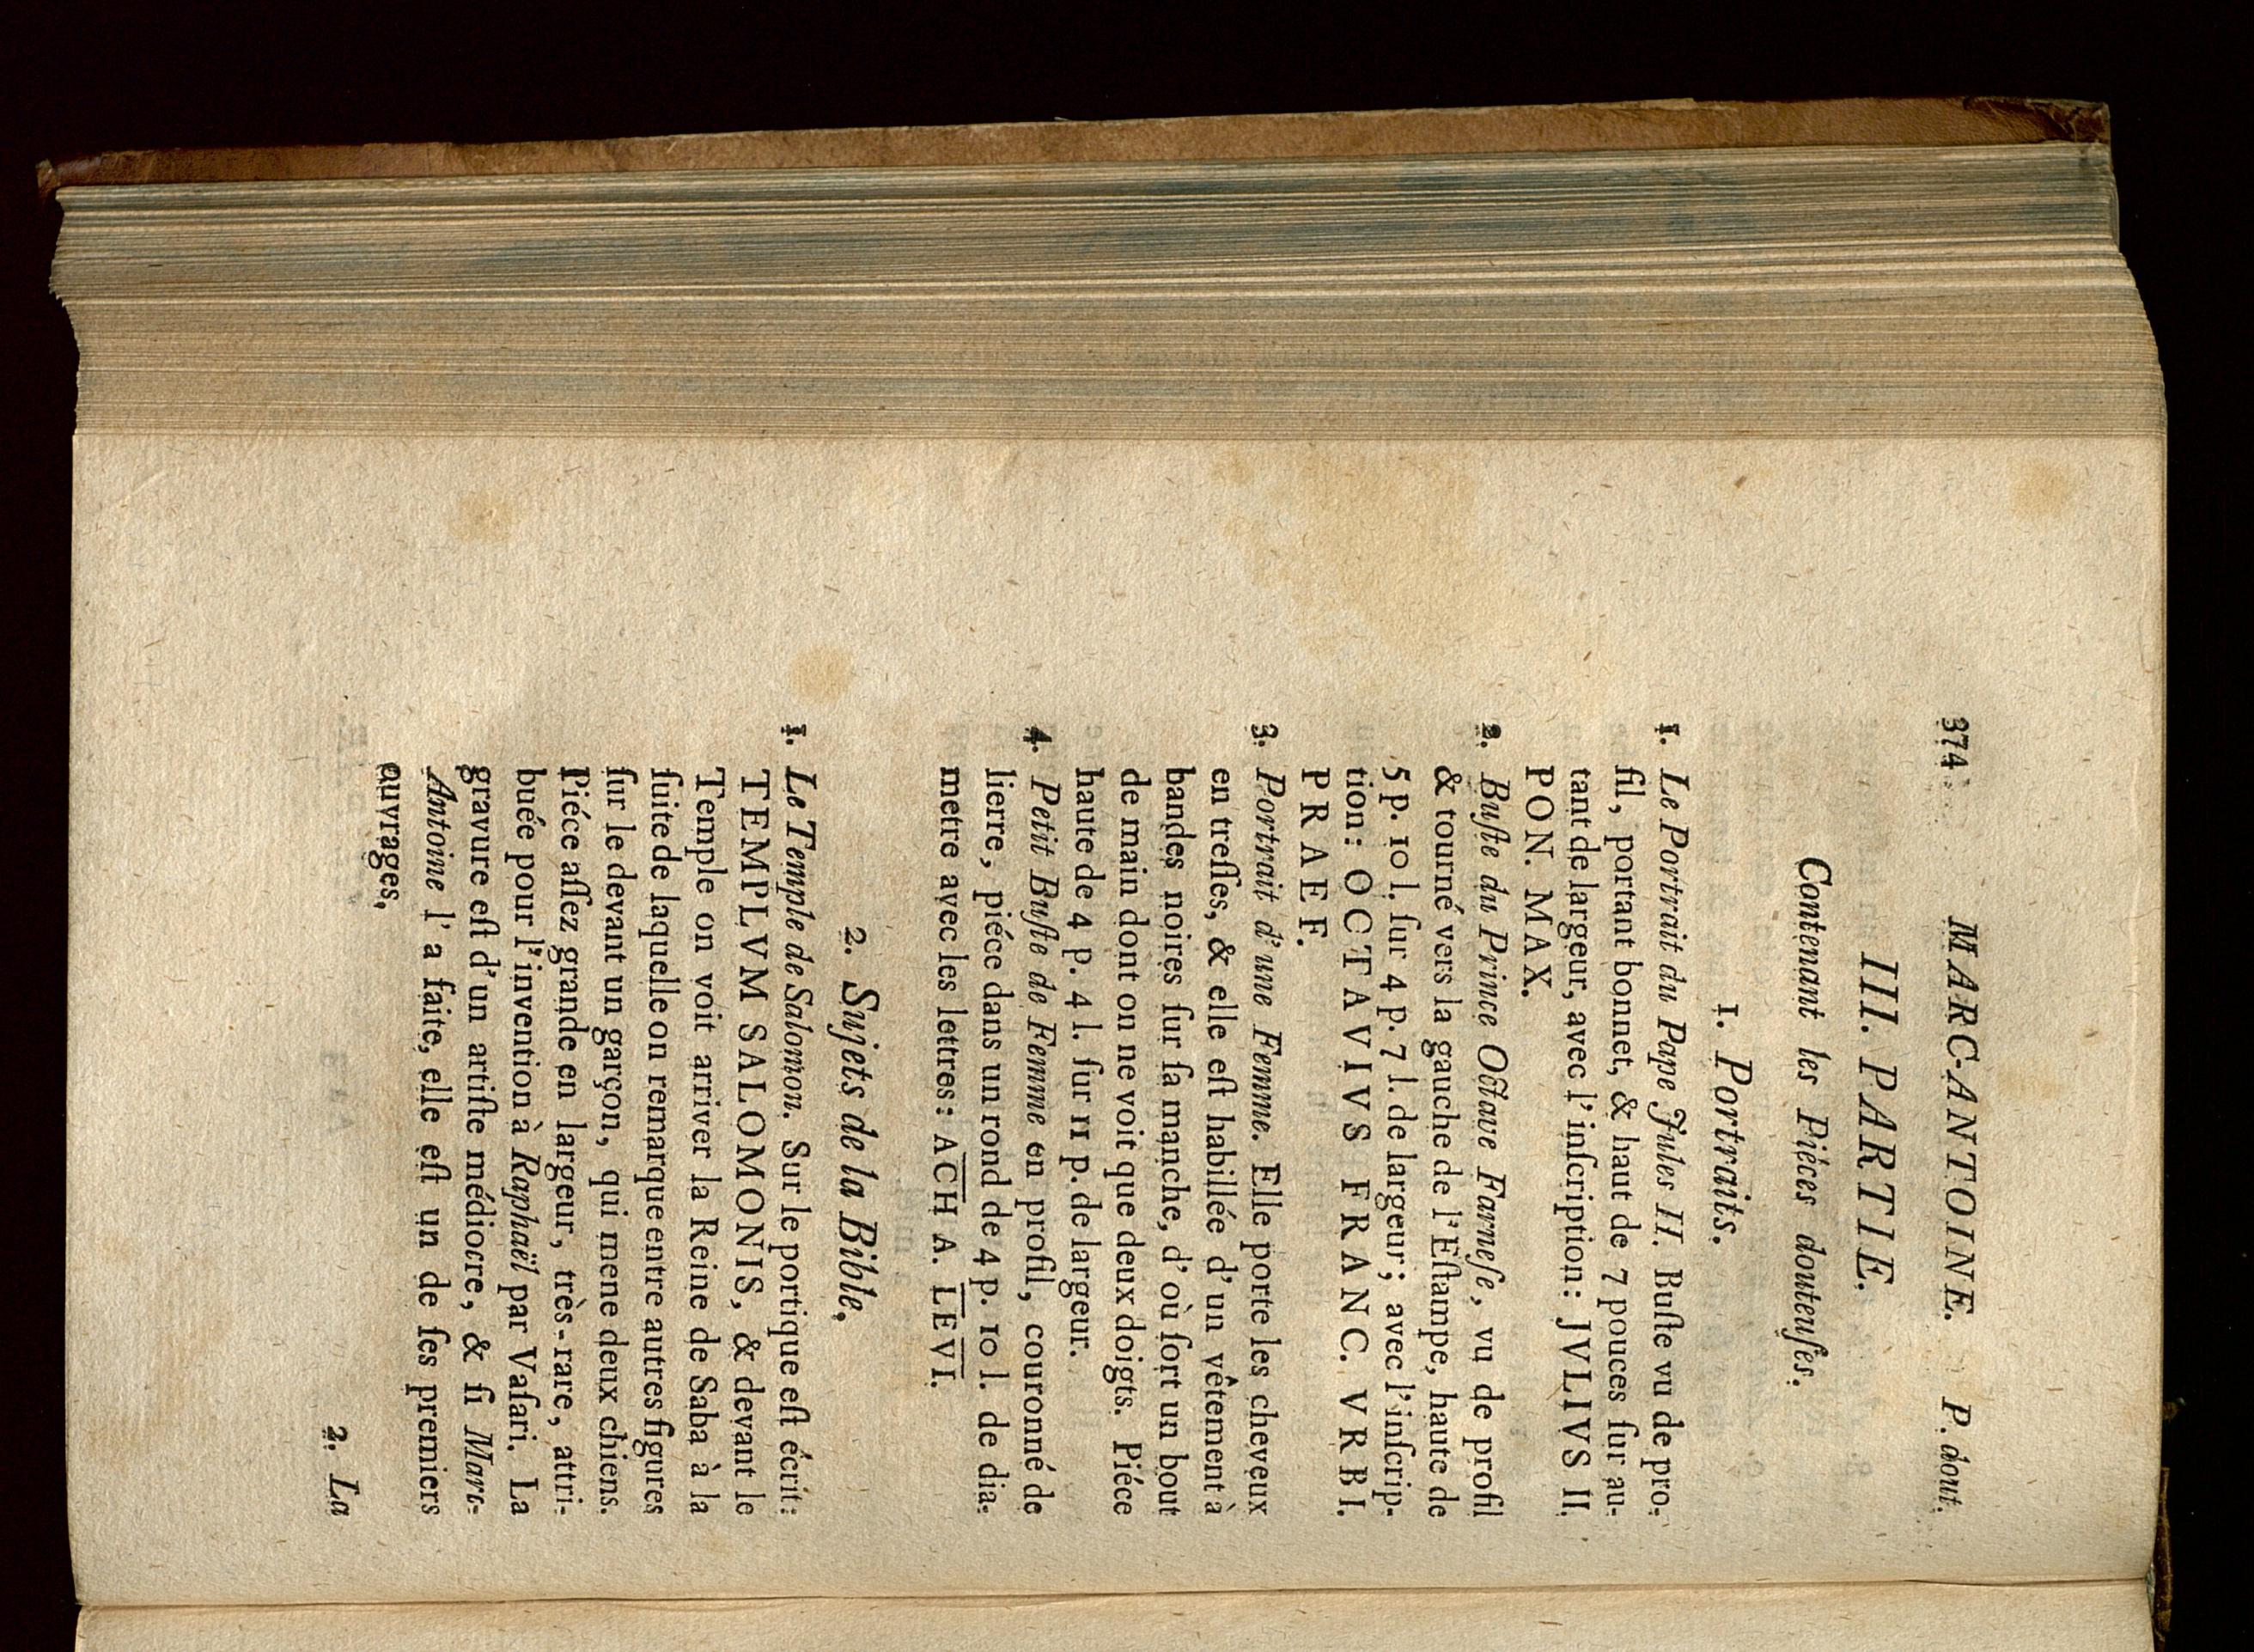 374 MARC-ANTOINE. P. dout.
III. PARTIE.
Contenant les Piéces douteuſes.
1. Portraits.
1. Le Portrait du Pape Jules II. Buſte vu de pro-
fil, portant bonnet, & haut de 7 pouces ſur au-
tant de largeur, avec l'inſcription: JVLIVS II.
PON. MAX.
2. Buſte du Prince Octave Farneſe, vu de profil
& tourné vers la gauche de l'Eſtampe, haute de
5 p. 10 l. ſur 4 p. 7 l. de largeur; avec l'inſcrip-
tion: OCTAVIVS FRANC. VRBI.
PRAEF.
3. Portrait d'une Femme. Elle porte les cheveux
en treſſes, & elle eſt habillée d'un vêtement à
bandes noires ſur ſa manche, d'où ſort un bout
de main dont on ne voit que deux doigts. Piéce
haute de 4 p. 4 l. ſur 11 p. de largeur.
4. Petit Buſte de Femme en profil, couronné de
lierre, piéce dans un rond de 4 p. 10 l. de dia-
metre avec les lettres: A̅C̅H̅ A. L̅E̅V̅I̅.
2. Sujets de la Bible.
1. Le Temple de Salomon. Sur le portique eſt écrit:
TEMPLVM SALOMONIS, & devant le
Temple on voit arriver la Reine de Saba à la
ſuite de laquelle on remarque entre autres figures
ſur le devant un garçon, qui mene deux chiens.
Piéce aſſez grande en largeur, très-rare, attri-
buée pour l'invention à Raphaël par Vaſari. La
gravure eſt d'un artiſte médiocre, & ſi Marc-
Antoine l'a faite, elle eſt un de ſes premiers
ouvrages,
2. La